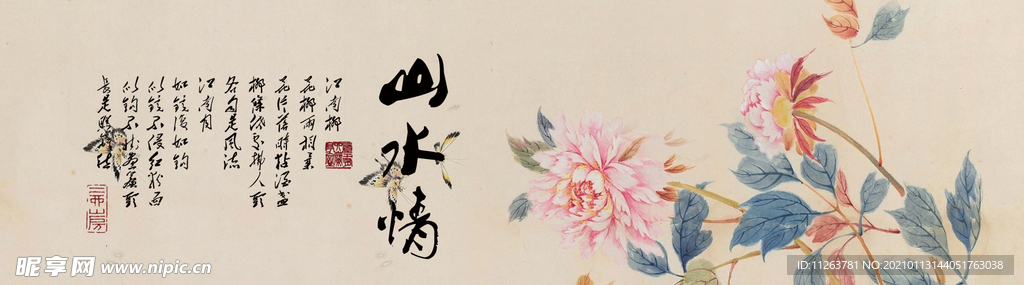 山水情
江南柳
花柳兩相柔
花片落時粘酒盏
柳條低處拂人頭
各自是風流
江南月
如鏡復如鈎
似鏡不侵紅粉面
似鈎不挂畫簾頭
長是照離愁
昵享网 www.nipic.cn
ID:11263781 NO:20210113144051763038